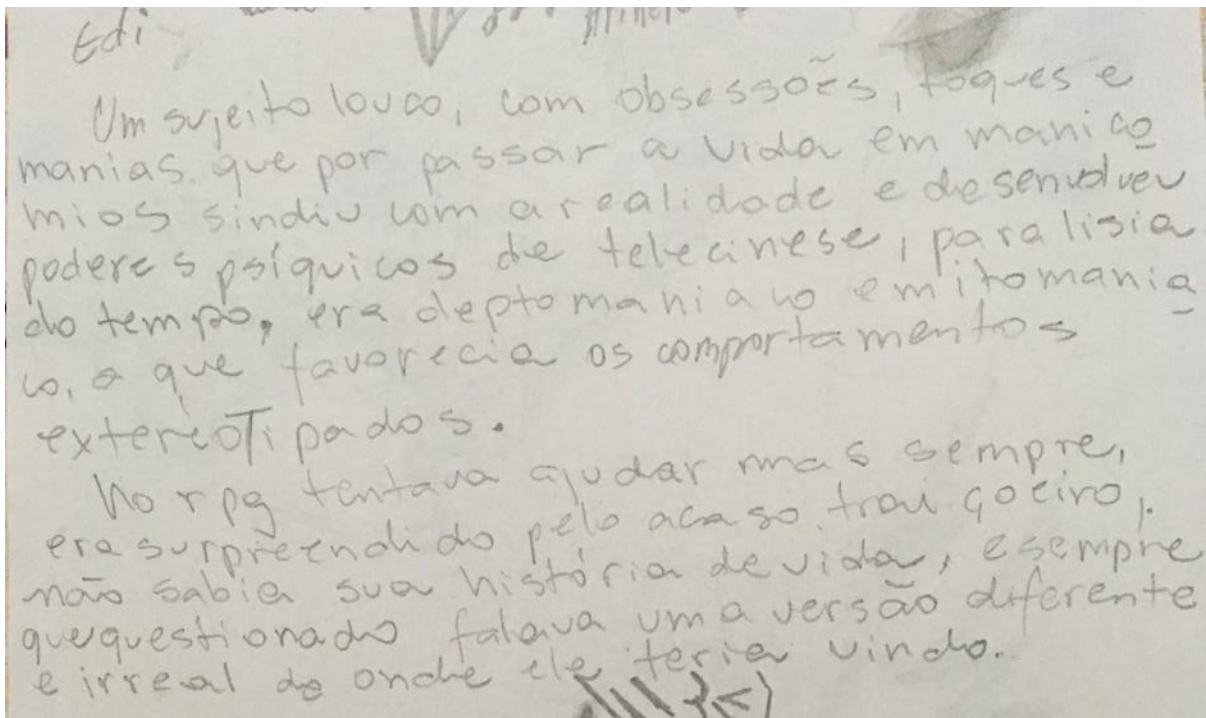 Edi
Um sujeito louco, com obsessões, toques e
manias. que por passar a vida em manicô
mios sindiu com a realidade e desenvolveu
poderes psíquicos de telecinese, paralisia
do tempo, era deptomaniaco e mitomania
co, o que favorecia os comportamentos
extereoTipados.
No rpg tentava ajudar mas sempre,
era surpreendido pelo acaso traiçoeiro,
não sabia sua história de vida, e sempre
que questionado falava uma versão diferente
e irreal de onde ele teria vindo.